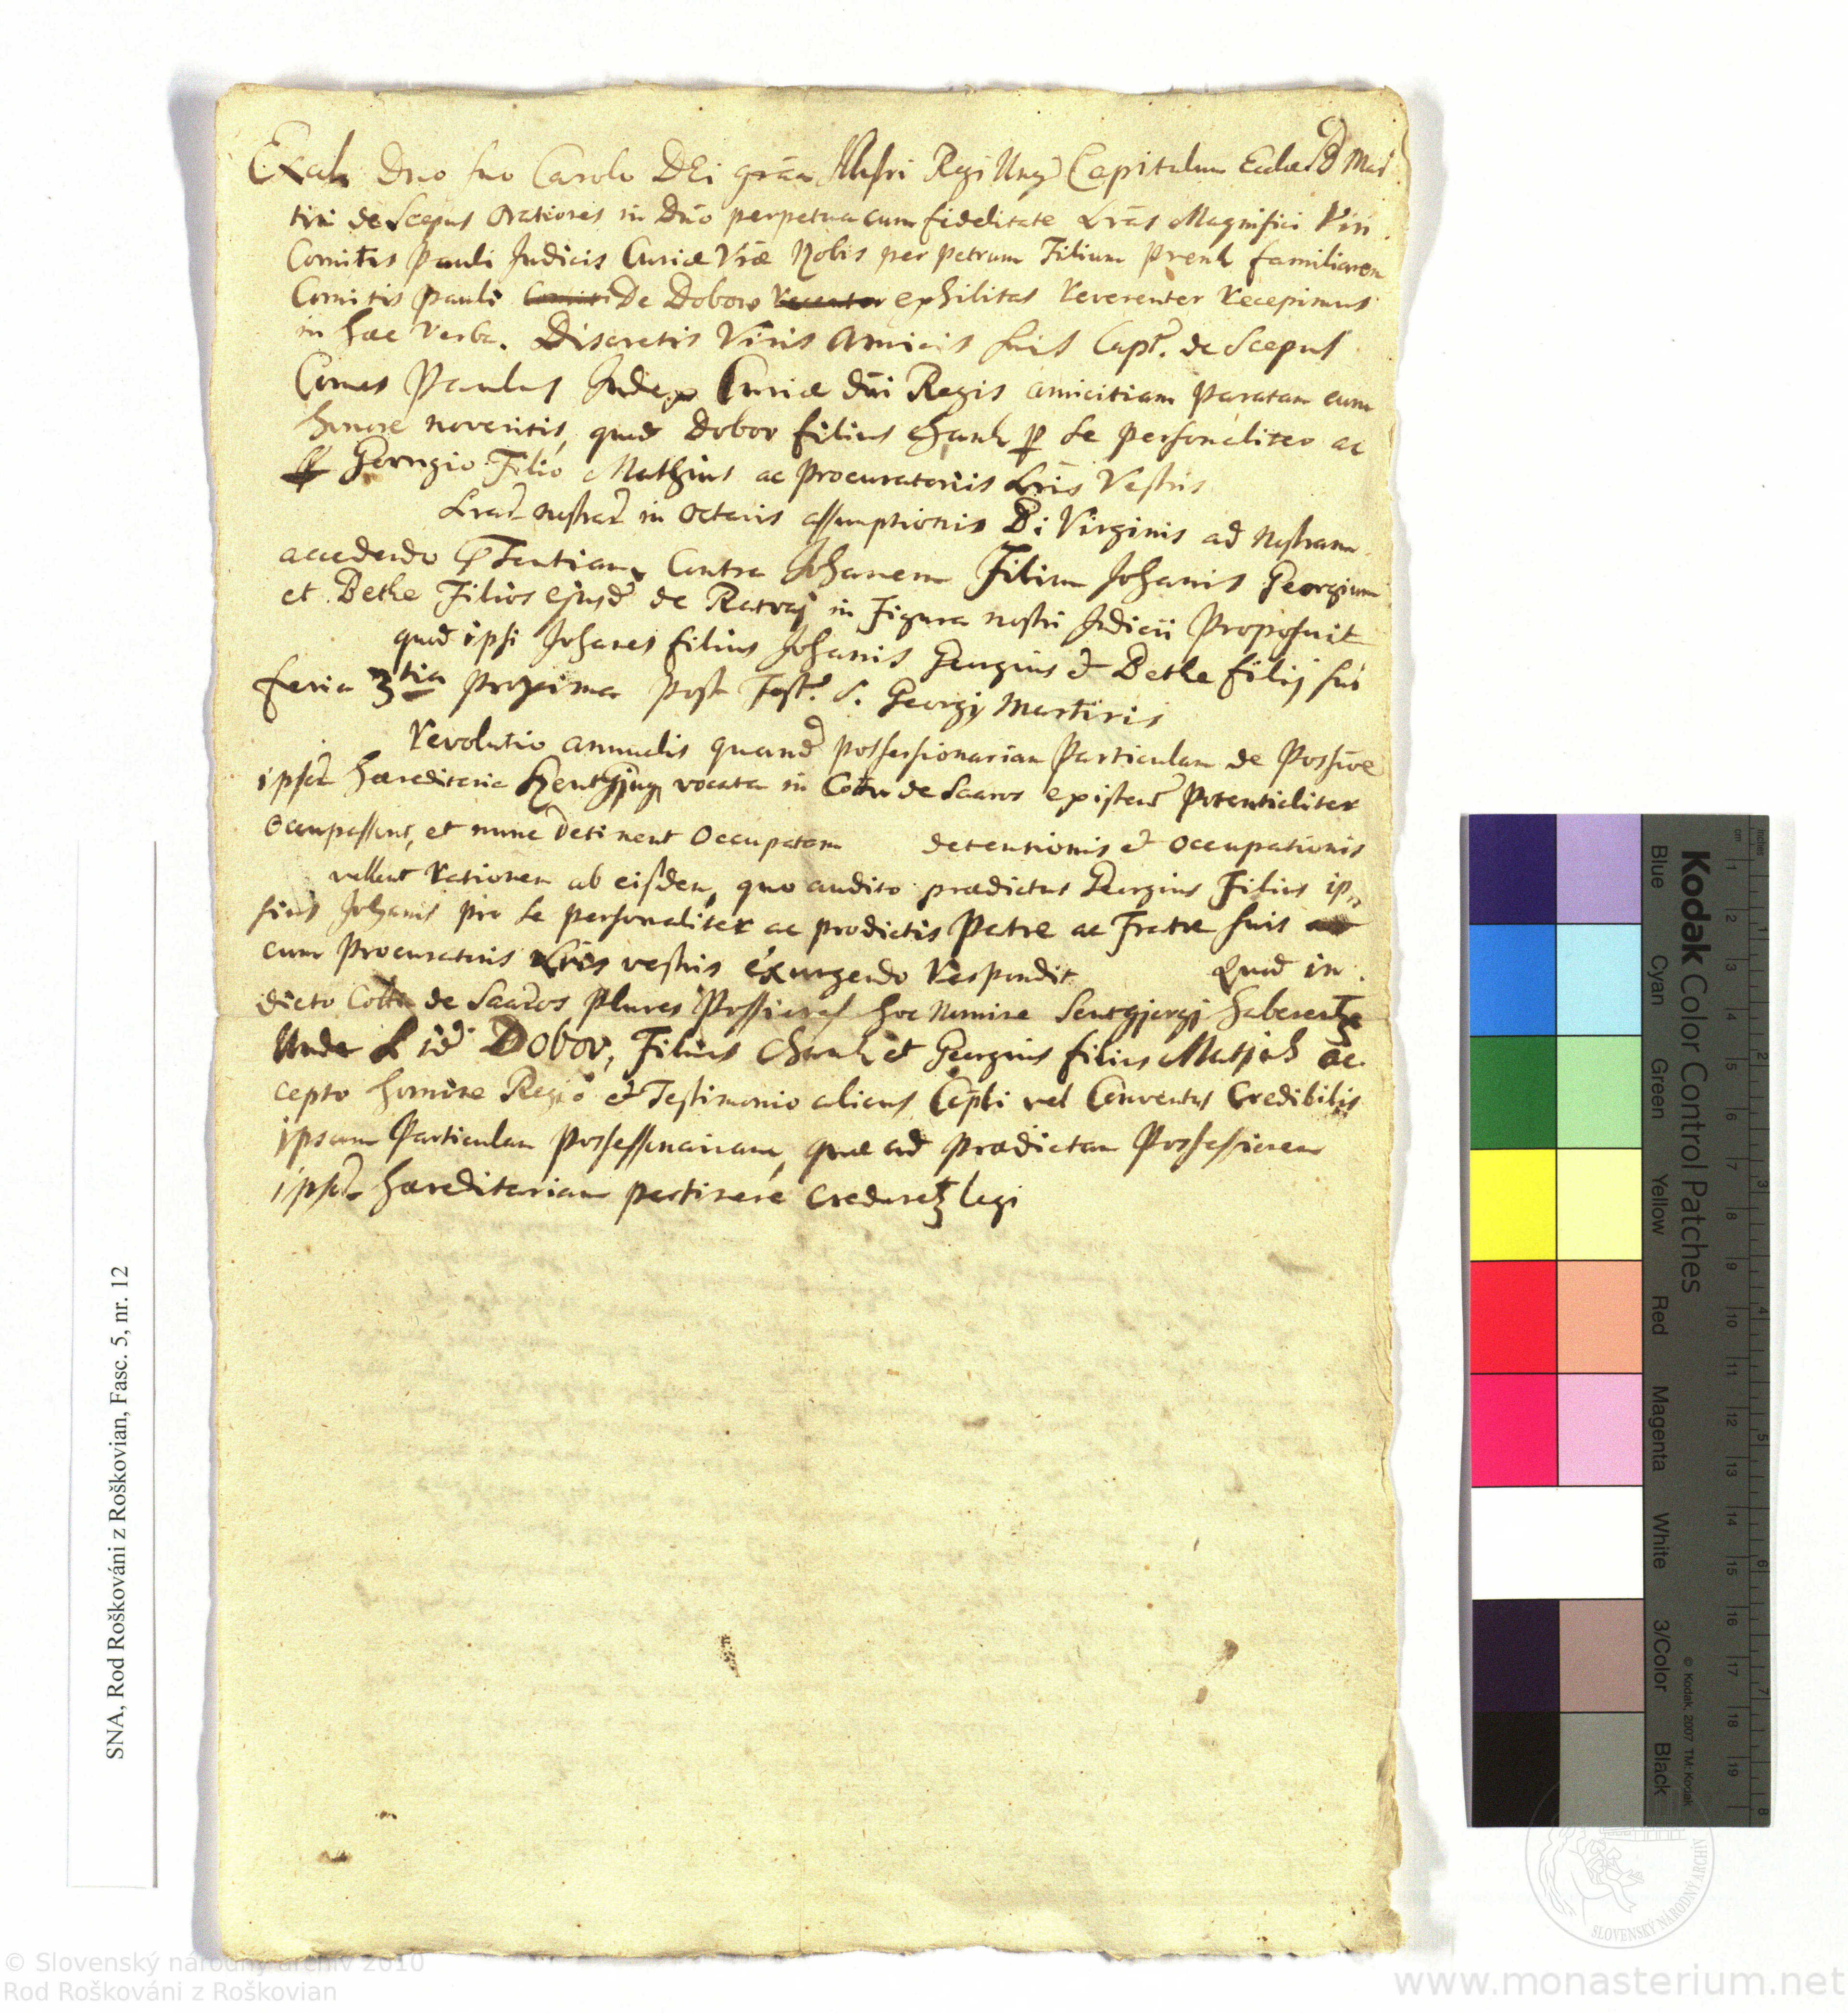 Excel. Dno suo Carolo DEi grãa Illustri Regi Ung Capitulum Eccle B Mar
tini de Scepus Orationes in Dño perpetua cum fidelitate Lrãs Magnifici Viri
Comitis Pauli Judicis Curiæ Vræ Nobis per Petrum Filium Prenk familiarem
Comitis Pauli De Dobow exhibitas Reverenter Recepimus
in hæc Verba. Discretis Viris Amicis suis Capt. de Scepus
Comes Paulus Judex Curiæ dñi Regis amicitiam paratam cum
honore noveritis, quod Dobov filius Chank p se personaliter ac
p Georgio Filio Mathius ac procuratoriis Lris Vestris
Lrar nostrar in octavis assumptionis B. Virginis ad nostram
accedendo pssentiam, Contra Johanem Filium Johanis Georgium
et Bethe Filios ejusd de Ratvaj in Figura nostri Judicii Proposuit
quod ipsi Johanes filius Johanis Georgius et Bethe filij sui
feria 3tia proxima post Fest. S. Georgy Martiris
Revolutio annualis quand possessionariam Particulam de Possioe
ipsor hæreditaria vocata in Cottu de Saaros existen Potentialiter
Occupassent, et nunc detinent Occupatam detentionis et occupationis
vellent Rationem ab eisdem, quo audito prædictus Georgius Filius ip„
sius Johanis pro se personaliter ac prodictis Patre ac Fratre suis
cum procuratoriis Lris vestris éxurgendo Respondit Quod in
dicto Cottu de Saaros Plures Possiones hoc Nomine Sentgjurgj haberentz
Unde id Dobov, Filius Chank et Georgius filius Matjas ac
cepto homine Regio et Testimonio alicus Capli vel Conventus Credibilis
ipsam Particulam possessionariam, quæ ad prædictam Possessionem
ipsor hæreditariam pertinere crederetz legi
SNA, Rod Roškováni z Roškovian, Fasc. 5, nr. 12
Kodak Color Control Patches
Blue Cyan Green Yellow Red Magenta White 3/Color Black
© Kodak, 2007 TM: Kodak
cm 1 2 3 4 5 6 7 8 9 10 11 12 13 14 15 16 17 18 19
inches 1 2 3 4 5 6 7 8
SLOVENSKÝ NÁRODNÝ ARCHÍV
© Slovenský národný archív 2010
Rod Roškováni z Roškovian
www.monasterium.net